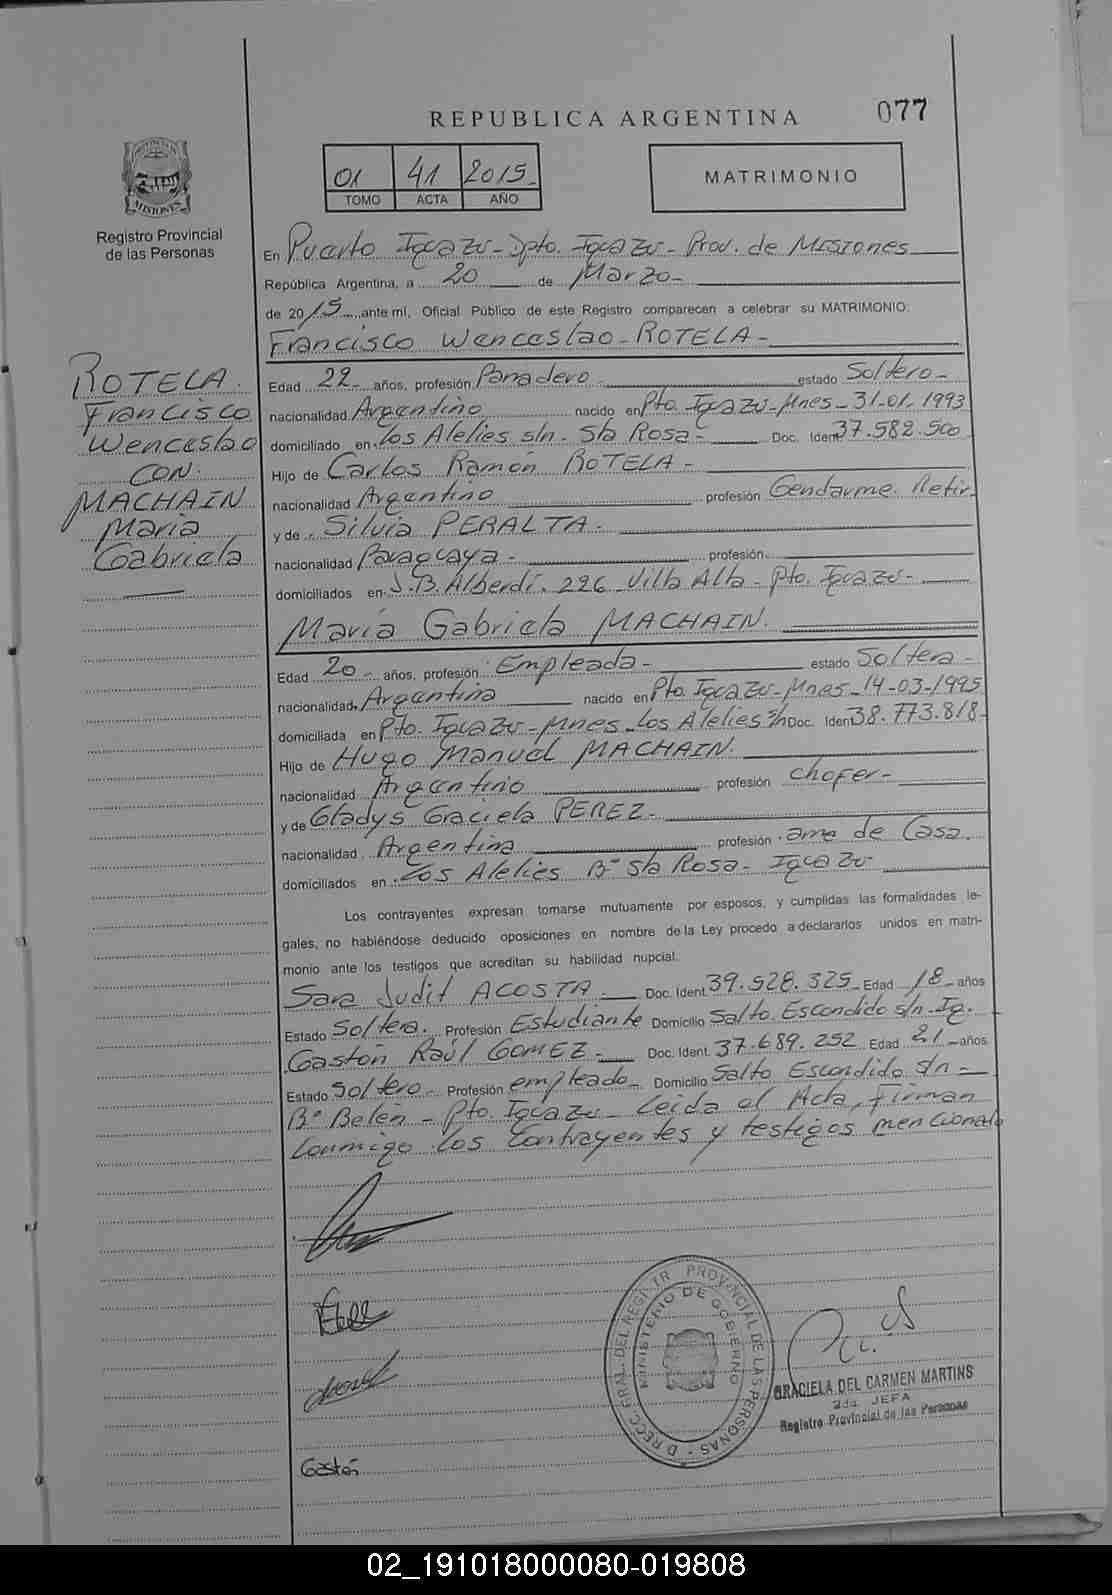 REPUBLICA ARGENTINA
077
PROVINCIA DE
MISIONES
Registro Provincial
de las Personas
01 41 2015
TOMO ACTA AÑO
MATRIMONIO
En Puerto Iguazú - Dpto. Iguazú - Prov. de Misiones
República Argentina, a 20 de Marzo
de 2015 ante mí, Oficial Público de este Registro comparecen a celebrar su MATRIMONIO:
Francisco Wenceslao - ROTELA -
ROTELA
Francisco
Wenceslao
CON
MACHAIN
Maria
Gabriela
Edad 22 - años, profesión Panadero - estado Soltero -
nacionalidad Argentino nacido en Pto. Iguazú - Mnes - 31.01.1993
domiciliado en Los Alelies s/n - Sta Rosa - Doc. Iden 37.582.500
Hijo de Carlos Ramón ROTELA -
nacionalidad Argentino profesión Gendarme Retir.
y de Silvia PERALTA -
nacionalidad Paraguaya - profesión
domiciliados en J.B. Alberdi. 226 Villa Alta - Pto. Iguazú -
María Gabriela MACHAIN.
Edad 20 - años, profesión Empleada - estado Soltera -
nacionalidad Argentina nacido en Pto. Iguazú - Mnes - 14-03-1995
domiciliada en Pto. Iguazú - Mnes - Los Alelies s/n Doc. Iden 38.773.818 -
Hijo de Hugo Manuel MACHAIN.
nacionalidad Argentino profesión chofer -
y de Gladys Graciela PEREZ -
nacionalidad Argentina profesión ama de Casa.
domiciliados en Los Alelies Bº Sta Rosa - Iguazú
Los contrayentes expresan tomarse mutuamente por esposos, y cumplidas las formalidades le-
gales, no habiéndose deducido oposiciones en nombre de la Ley procedo a declararlos unidos en matri-
monio ante los testigos que acreditan su habilidad nupcial.
Sara Judit ACOSTA - Doc. Ident. 39.528.325 - Edad 18 - años
Estado Soltera. Profesión Estudiante Domicilio Salto Escondido s/n - Ig.
Gastón Raúl GOMEZ - Doc. Ident. 37.689.252 Edad 21 - años
Estado Soltero - Profesión empleado - Domicilio Salto Escondido s/n -
Bº Belén - Pto. Iguazú - Leida el Acta, Firman
Conmigo los Contrayentes y testigos mencionado
Gastón
DIRECC. GRAL. DEL REGISTR. PROVINCIAL DE LAS PERSONAS
MINISTERIO DE GOBIERNO
GRACIELA DEL CARMEN MARTINS
2da JEFA
Registro Provincial de las Personas
02_191018000080-019808